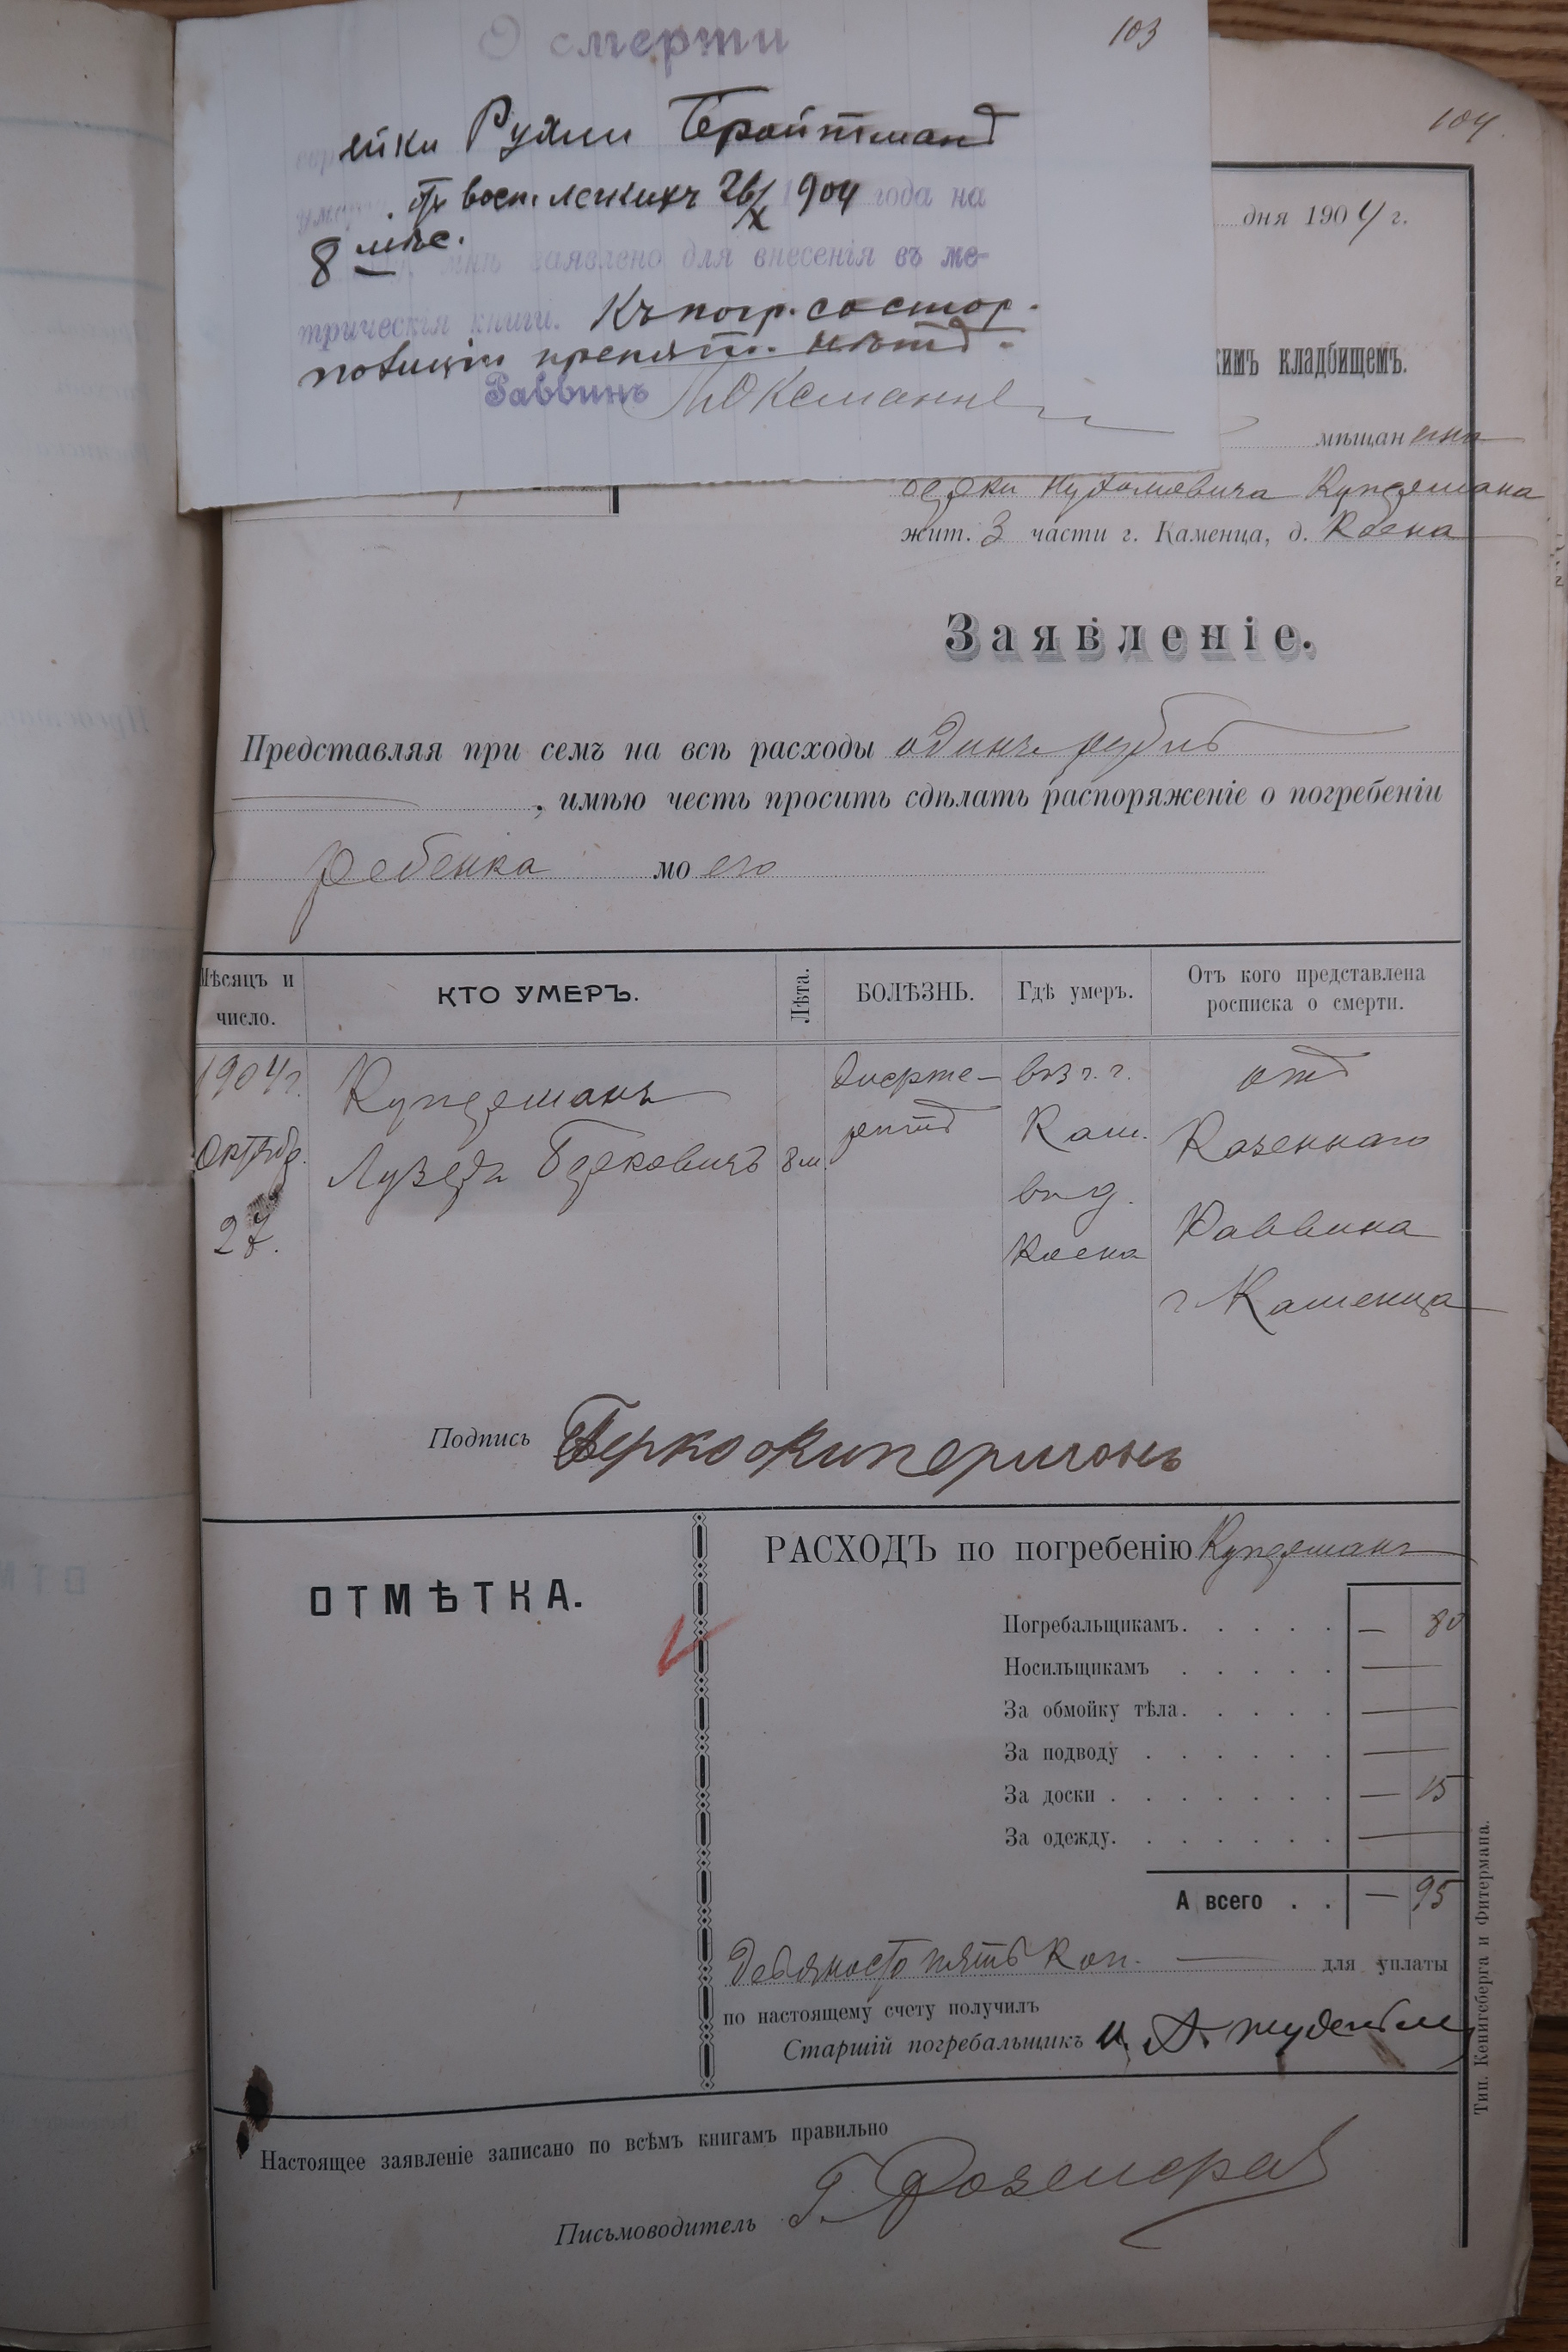 О смерти
103
ейки Рухли Бройтманъ
104
умер от восп. легкихъ 26/X 1904 года на
8 мѣс.
мнѣ заявлено для внесенія въ ме-
трическія книги. Къ погр. со стор.
полиціи препятст. нѣтъ.
Раввинъ
дня 1904 г.
кимъ кладбищемъ.
мѣщанина
Берки Нухимовича Купермана
жит. 3 части г. Каменца, д. Коена
Заявленіе.
Представляя при семъ на всѣ расходы одинъ рубль
, имѣю честь просить сдѣлать распоряженіе о погребеніи
ребенка моего
Мѣсяцъ и число.
КТО УМЕРЪ.
Лѣта.
БОЛѢЗНЬ.
Гдѣ умеръ.
Отъ кого представлена росписка о смерти.
1904 г.
Октяб.
27.
Куперманъ
Берковичъ
8 м.
въ 3 ч. г.
Кам.
въ д.
Коена
отъ
Казеннаго
Раввина
г Каменца
Подпись Берко Киперманъ
ОТМѢТКА.
РАСХОДЪ по погребенію Куперманъ
Погребальщикамъ. . . . . — 80
Носильщикамъ . . . . . —
За обмойку тѣла. . . . . —
За подводу . . . . . . —
За доски . . . . . . . — 15
За одежду. . . . . . . —
А всего . . — 95
Девяносто пять коп. — для уплаты
по настоящему счету получилъ
Старшій погребальщикъ
Настоящее заявленіе записано по всѣмъ книгамъ правильно
Письмоводитель
Тип. Кенигсберга и Фитермана.